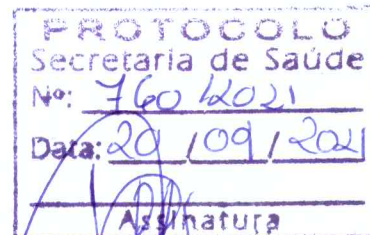 PROTOCOLO
Secretaria de Saúde
Nº: 760/2021
Data: 20 / 09 / 2021
Assinatura